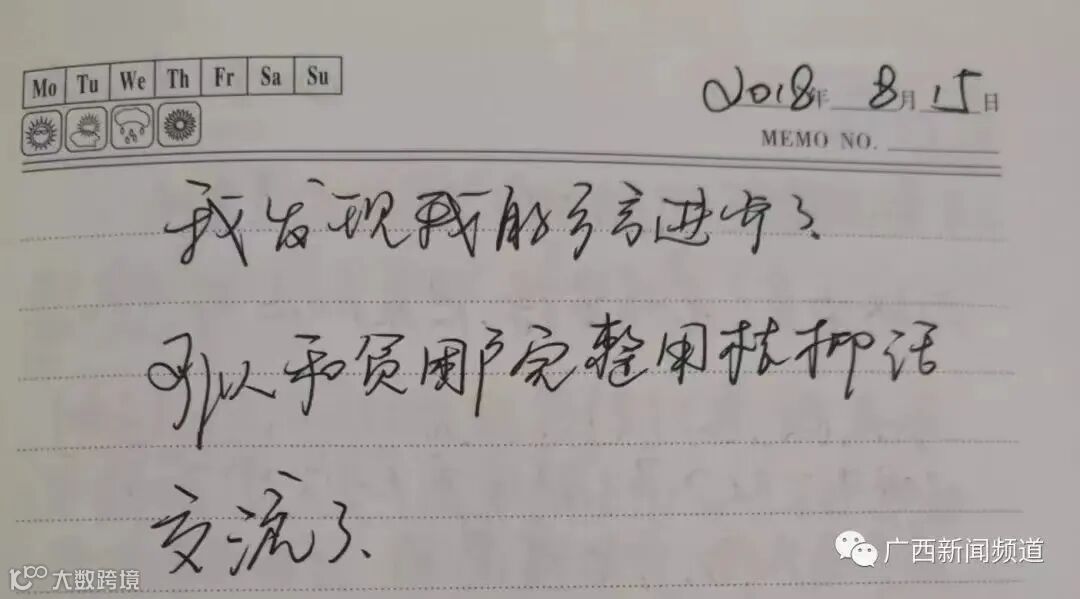 Mo Tu We Th Fr Sa Su
2018年 8月 15日
MEMO NO.
我发现我的方言进步了、
可以和贫困户完整用桂柳话
交流了、
广西新闻频道
大数跨境